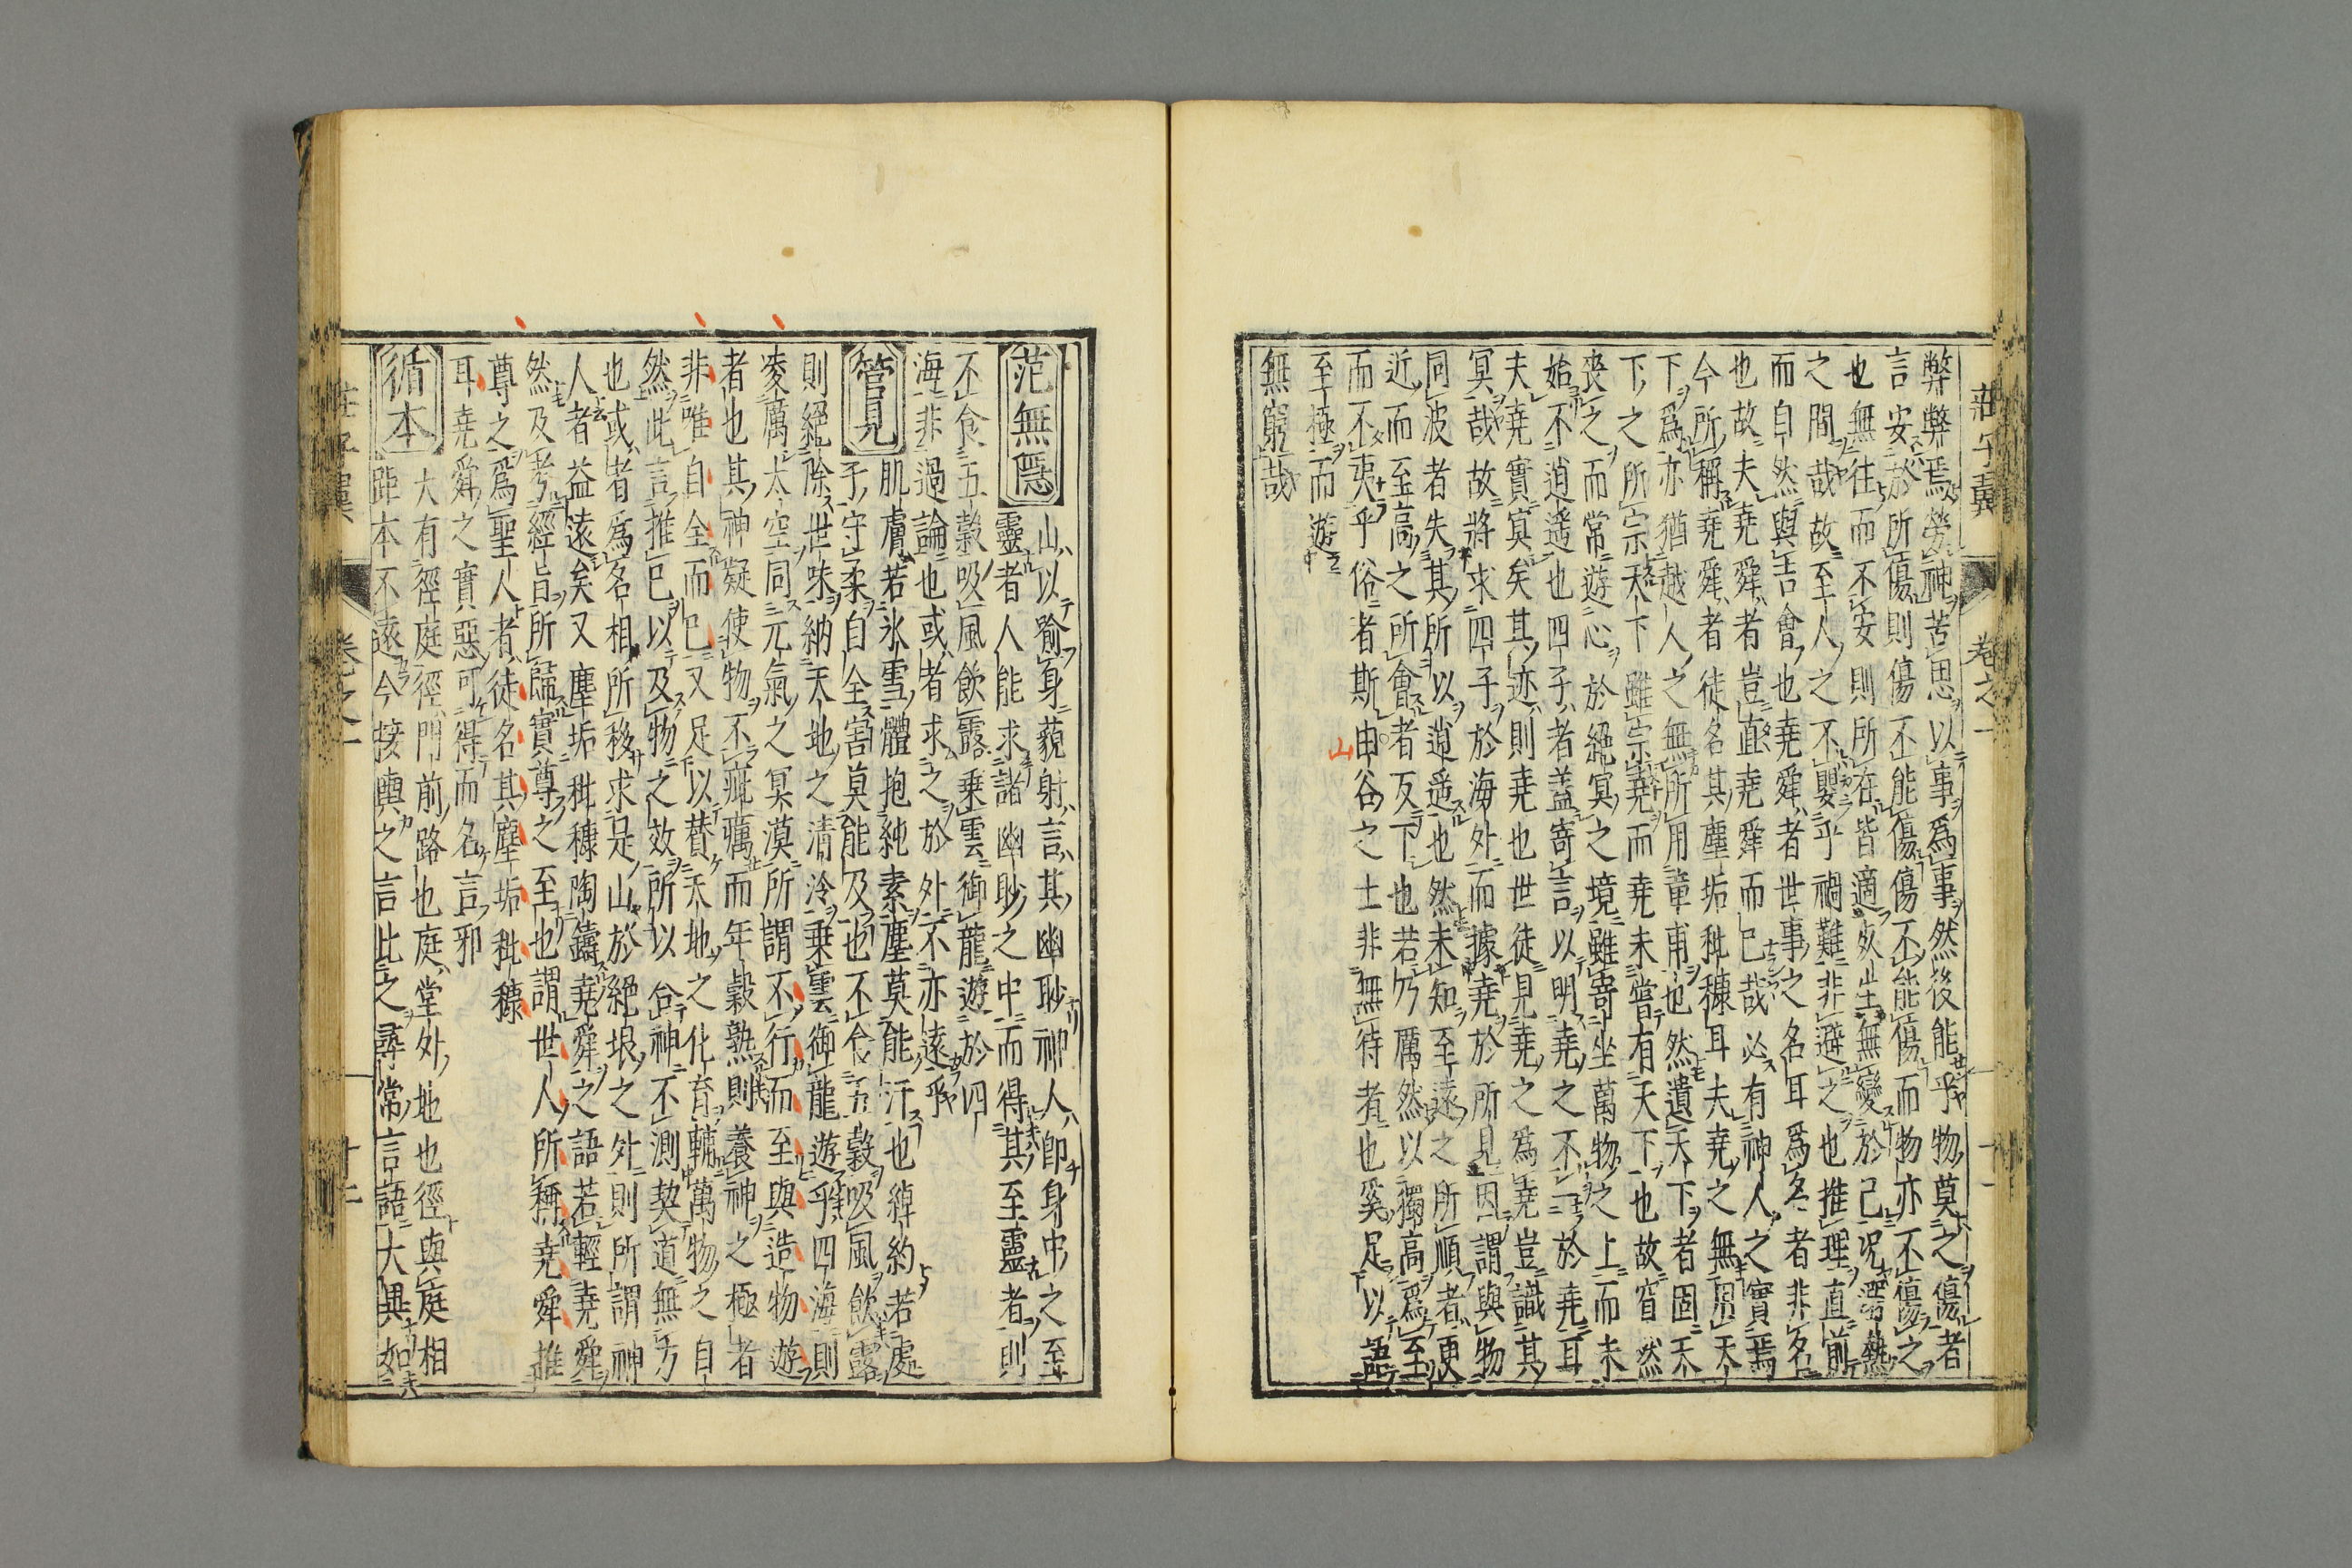 莊子翼 卷之一
弊弊焉勞神苦思以事爲事然後能乎物莫之傷者
言安於所傷則傷不能傷傷不能傷而物亦不傷之
也無往而不安則所在皆適死生無變於己况溺熱
之間哉故至人之不嬰乎禍難非避之也推理直前
而自然與吉會也堯舜者世事之名耳爲名者非名
也故夫堯舜者豈直堯舜而已哉必有神人之實焉
今所稱堯舜者徒名其塵垢秕糠耳夫堯之無用天
下爲亦猶越人之無所用章甫也然遺天下者固天
下之所宗天下雖宗堯而堯未嘗有天下也故窅然
喪之而常遊心於絕冥之境雖寄坐萬物之上而未
始不逍遙也四子者蓋寄言以明堯之不一於堯耳
夫堯實冥矣其迹則堯也世徒見堯之爲堯豈識其
冥哉故將求四子於海外而據堯於所見因謂與物
同波者失其所以逍遙也然未知至遠之所順者更
近而至高之所會者反下也若乃厲然以獨高爲至
而不夷乎俗者斯山谷之士非無待者也奚足以語
至極而遊
無窮哉
范無隱 山以喻身藐射言其幽眇神人即身中之至
靈者人能求諸幽眇之中而得其至靈者則
不食五穀吸風飲露乘雲御龍遊於四
海非過論也或者求之於外不亦遠乎
管見 肌膚若氷雪體抱純素塵莫能汗也綽約若處
子守柔自全害莫能及也不食五穀吸風飲露
則絕除世味納天地之清泠乘雲御龍遊乎四海則
凌厲太空同元氣之冥漠所謂不行而至與造物遊
者也其神凝使物不疵癘而年穀熟則養神之極者
非唯自全而已又足以贊天地之化育輔萬物之自
然此言推己以及物之效所以合神不測契道無方
也或者爲名相所移求是山於絕垠之外則所謂神
人者益遠矣又塵垢秕糠陶鑄堯舜之語若輕堯舜
然及考經旨所歸實尊之至也謂世人所稱堯舜推
尊之爲聖人者徒名其塵垢秕糠
耳堯舜之實惡可得而名言邪
循本 大有徑庭徑門前路也庭堂外地也徑與庭相
距本不遠今接輿之言此之尋常言語大異如
卷之一
十二